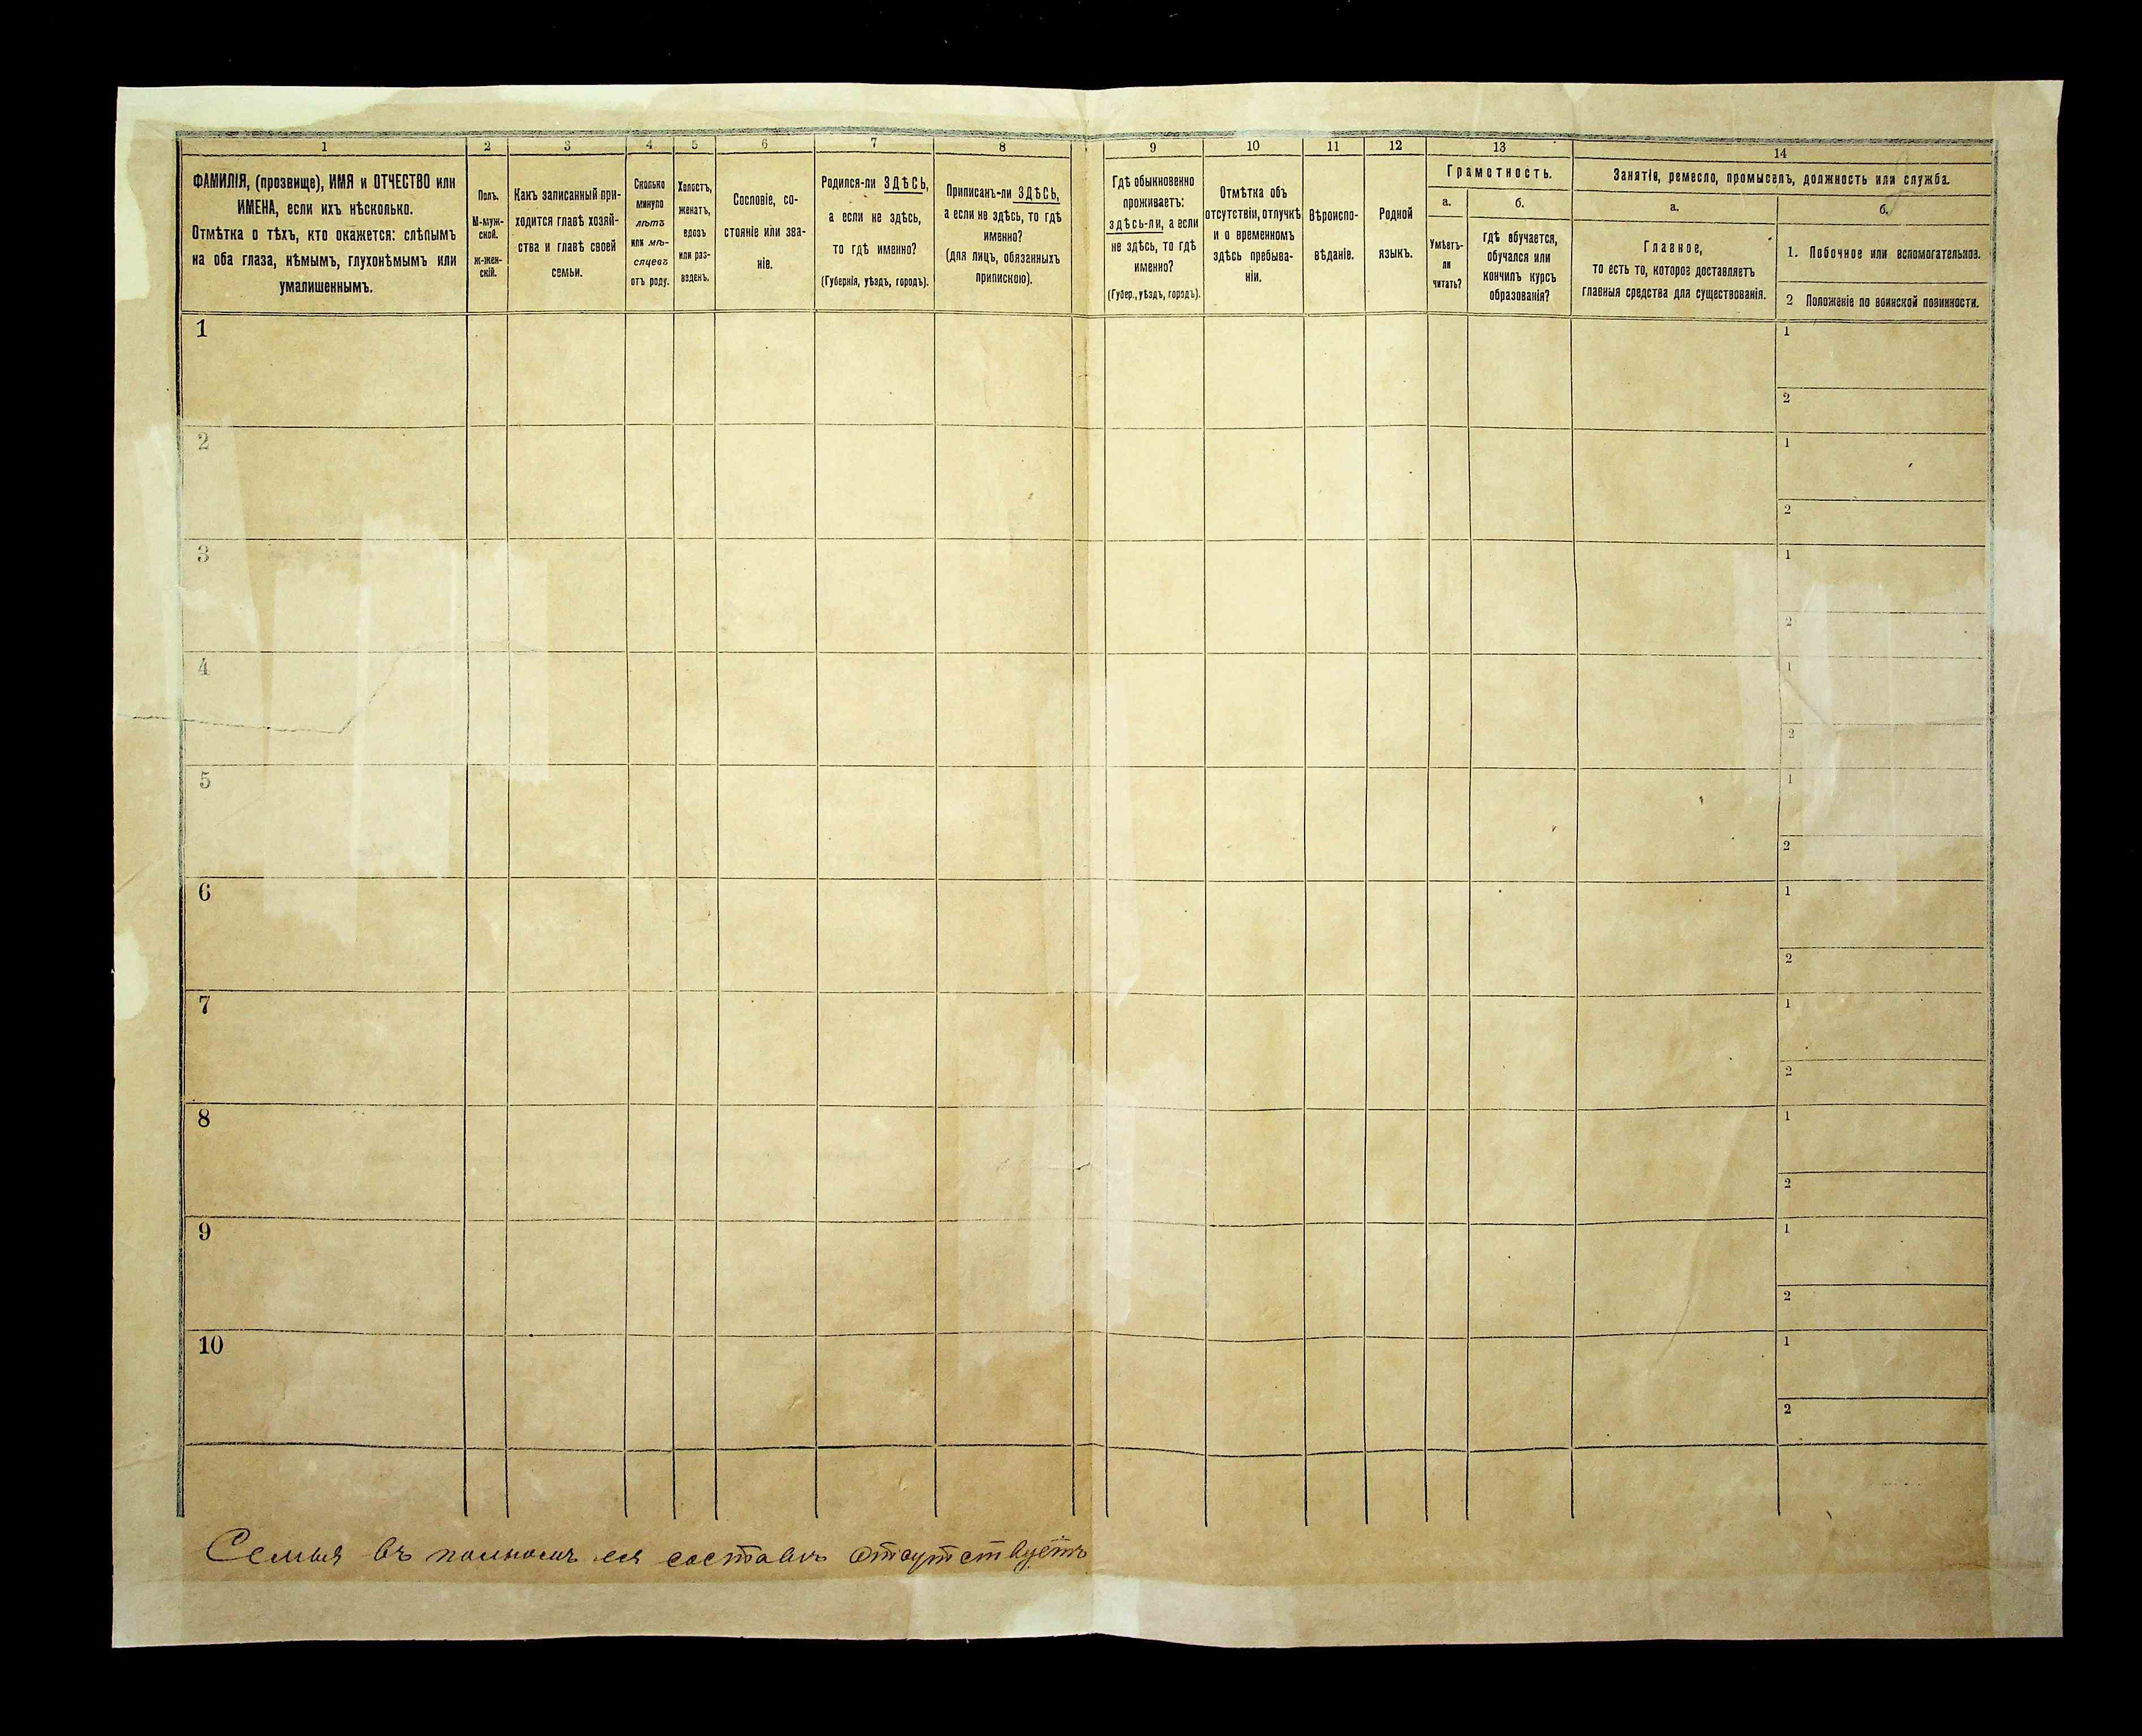 1 2 3 4 5 6 7 8 9 10 11 12 13 14
ФАМИЛІЯ, (прозвище), ИМЯ и ОТЧЕСТВО или
ИМЕНА, если ихъ нѣсколько.
Отмѣтка о тѣхъ, кто окажется: слѣпымъ
на оба глаза, нѣмымъ, глухонѣмымъ или
умалишеннымъ.
Полъ.
М-муж-
ской.
ж-жен-
скій.
Какъ записанный при-
ходится главѣ хозяй-
ства и главѣ своей
семьи.
Сколько
минуло
лѣтъ
или мѣ-
сяцевъ
отъ роду.
Холостъ,
женатъ,
вдовъ
или раз-
веденъ.
Сословіе, со-
стояніе или зва-
ніе.
Родился-ли ЗДѢСЬ,
а если не здѣсь,
то гдѣ именно?
(Губернія, уѣздъ, городъ).
Приписанъ-ли ЗДѢСЬ,
а если не здѣсь, то гдѣ
именно?
(для лицъ, обязанныхъ
припискою).
Гдѣ обыкновенно
проживаетъ:
здѣсь-ли, а если
не здѣсь, то гдѣ
именно?
(Губер., уѣздъ, городъ).
Отмѣтка объ
отсутствіи, отлучкѣ
и о временномъ
здѣсь пребыва-
ніи.
Вѣроиспо-
вѣданіе.
Родной
языкъ.
Грамотность.
а.
Умѣетъ-
ли
читать?
б.
гдѣ обучается,
обучался или
кончилъ курсъ
образованія?
Занятіе, ремесло, промыселъ, должность или служба.
а.
Главное,
то есть то, которое доставляетъ
главныя средства для существованія.
б.
1. Побочное или вспомогательное.
2 Положеніе по воинской повинности.
1 1
2
2 1
2
3 1
2
4 1
2
5 1
2
6 1
2
7 1
2
8 1
2
9 1
2
10 1
2
Семья въ полномъ ея составѣ отсутствуетъ